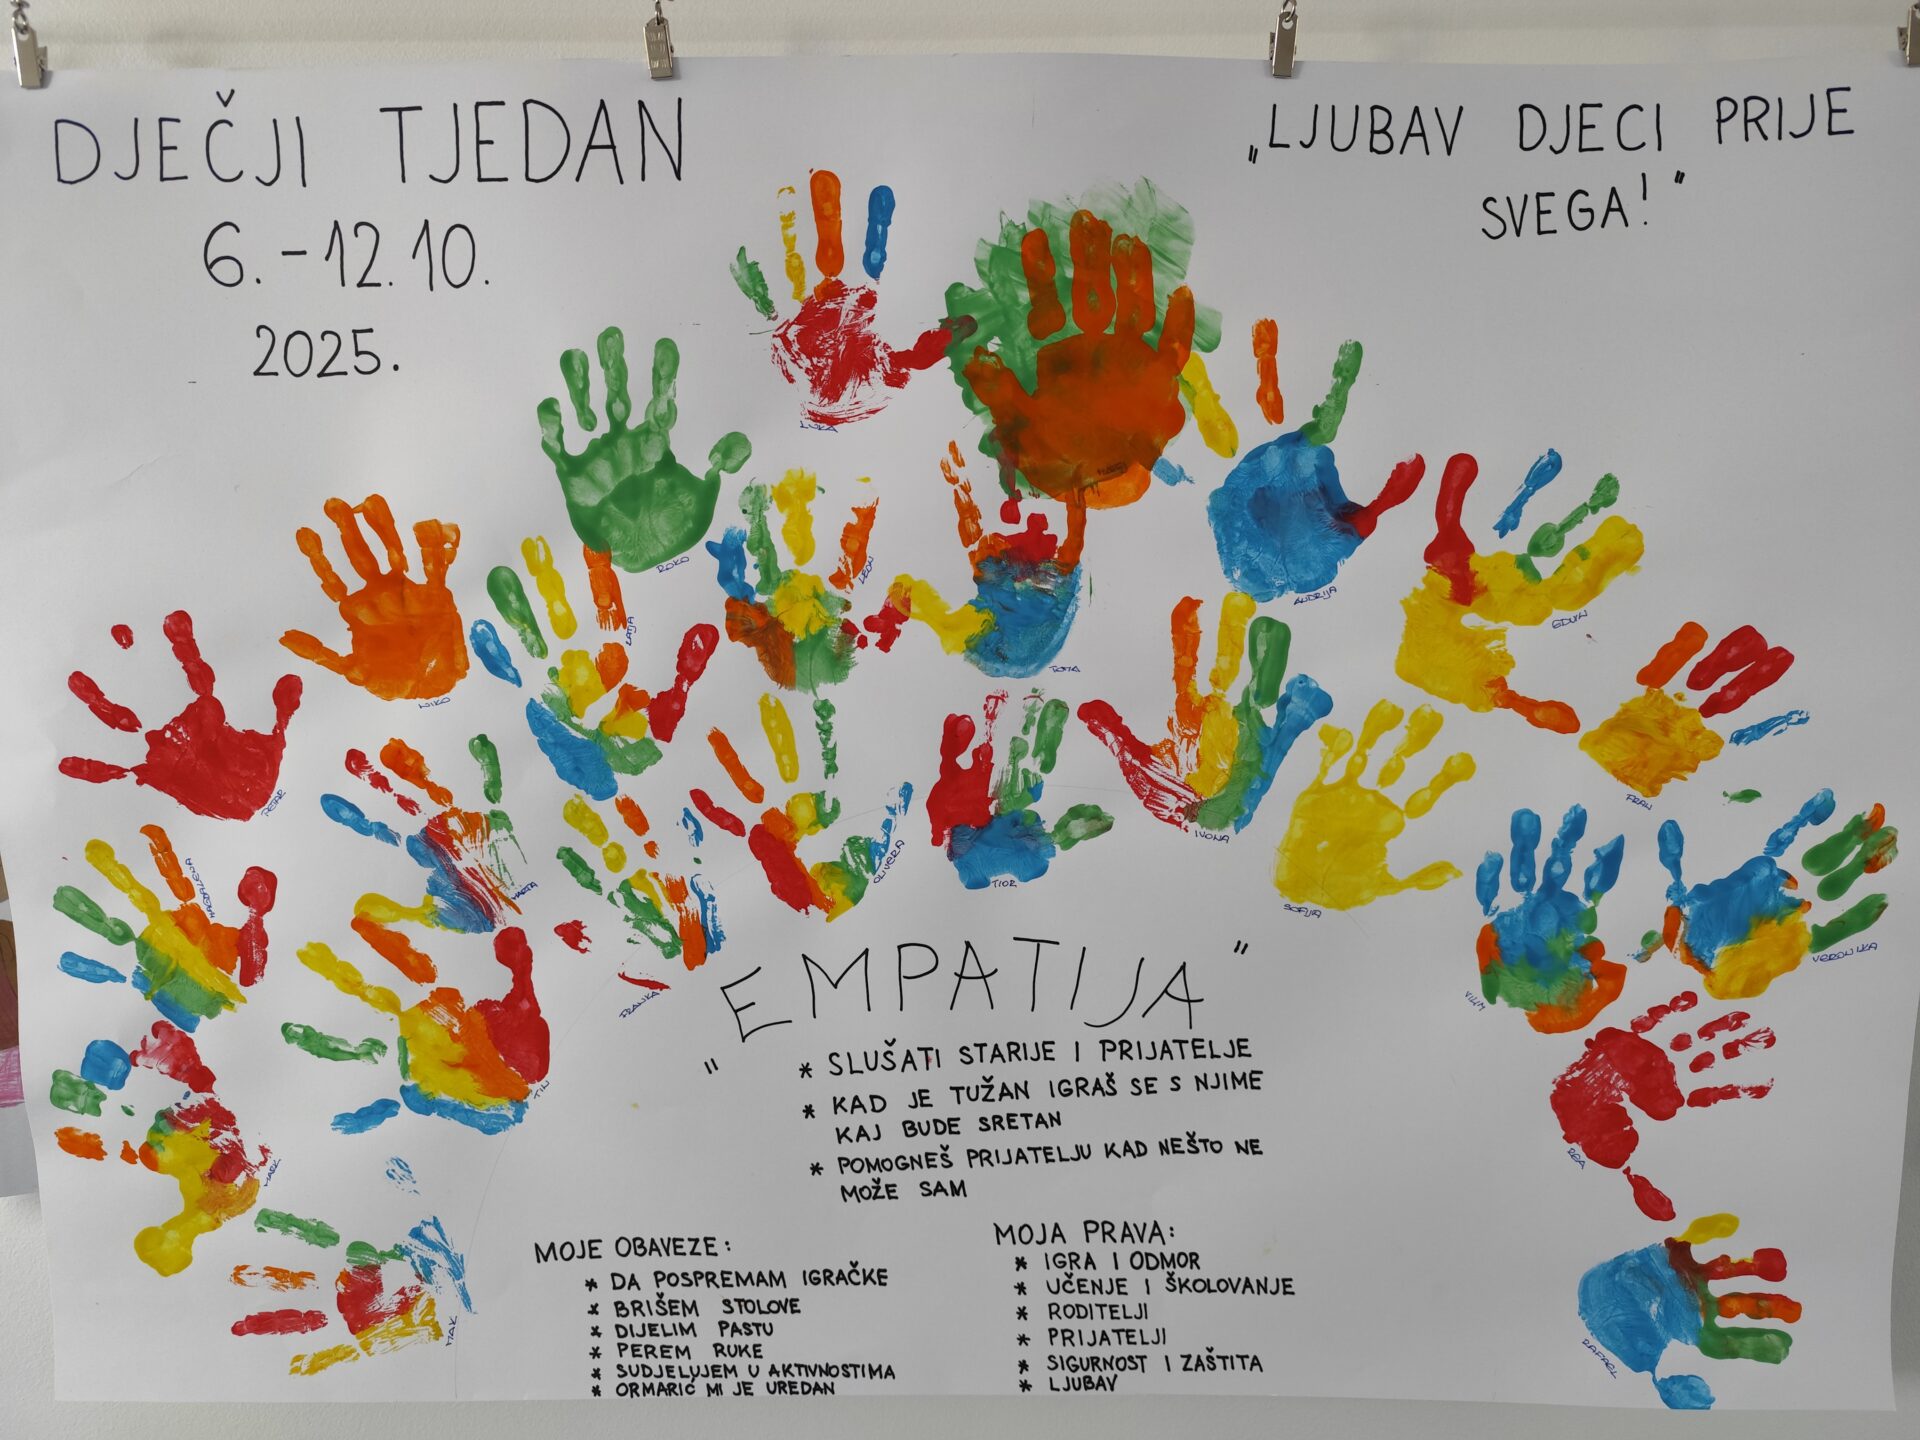 DJEČJI TJEDAN
6. - 12. 10.
2025.
„LJUBAV DJECI PRIJE
SVEGA!"
LUKA
ROKO
LEON
ANDRIJA
EDVIN
NIKO
PETAR
FRAN
IVONA
TIOR
OLIVERA
SOFIJA
MARTA
MAGDALENA
VERONIKA
VILIM
FRANKA
TIN
MARK
REA
MAK
RAFAEL
„EMPATIJA"
* SLUŠATI STARIJE I PRIJATELJE
* KAD JE TUŽAN IGRAŠ SE S NJIME
KAJ BUDE SRETAN
* POMOGNEŠ PRIJATELJU KAD NEŠTO NE
MOŽE SAM
MOJE OBAVEZE:
* DA POSPREMAM IGRAČKE
* BRIŠEM STOLOVE
* DIJELIM PASTU
* PEREM RUKE
* SUDJELUJEM U AKTIVNOSTIMA
* ORMARIĆ MI JE UREDAN
MOJA PRAVA:
* IGRA I ODMOR
* UČENJE I ŠKOLOVANJE
* RODITELJI
* PRIJATELJI
* SIGURNOST I ZAŠTITA
* LJUBAV